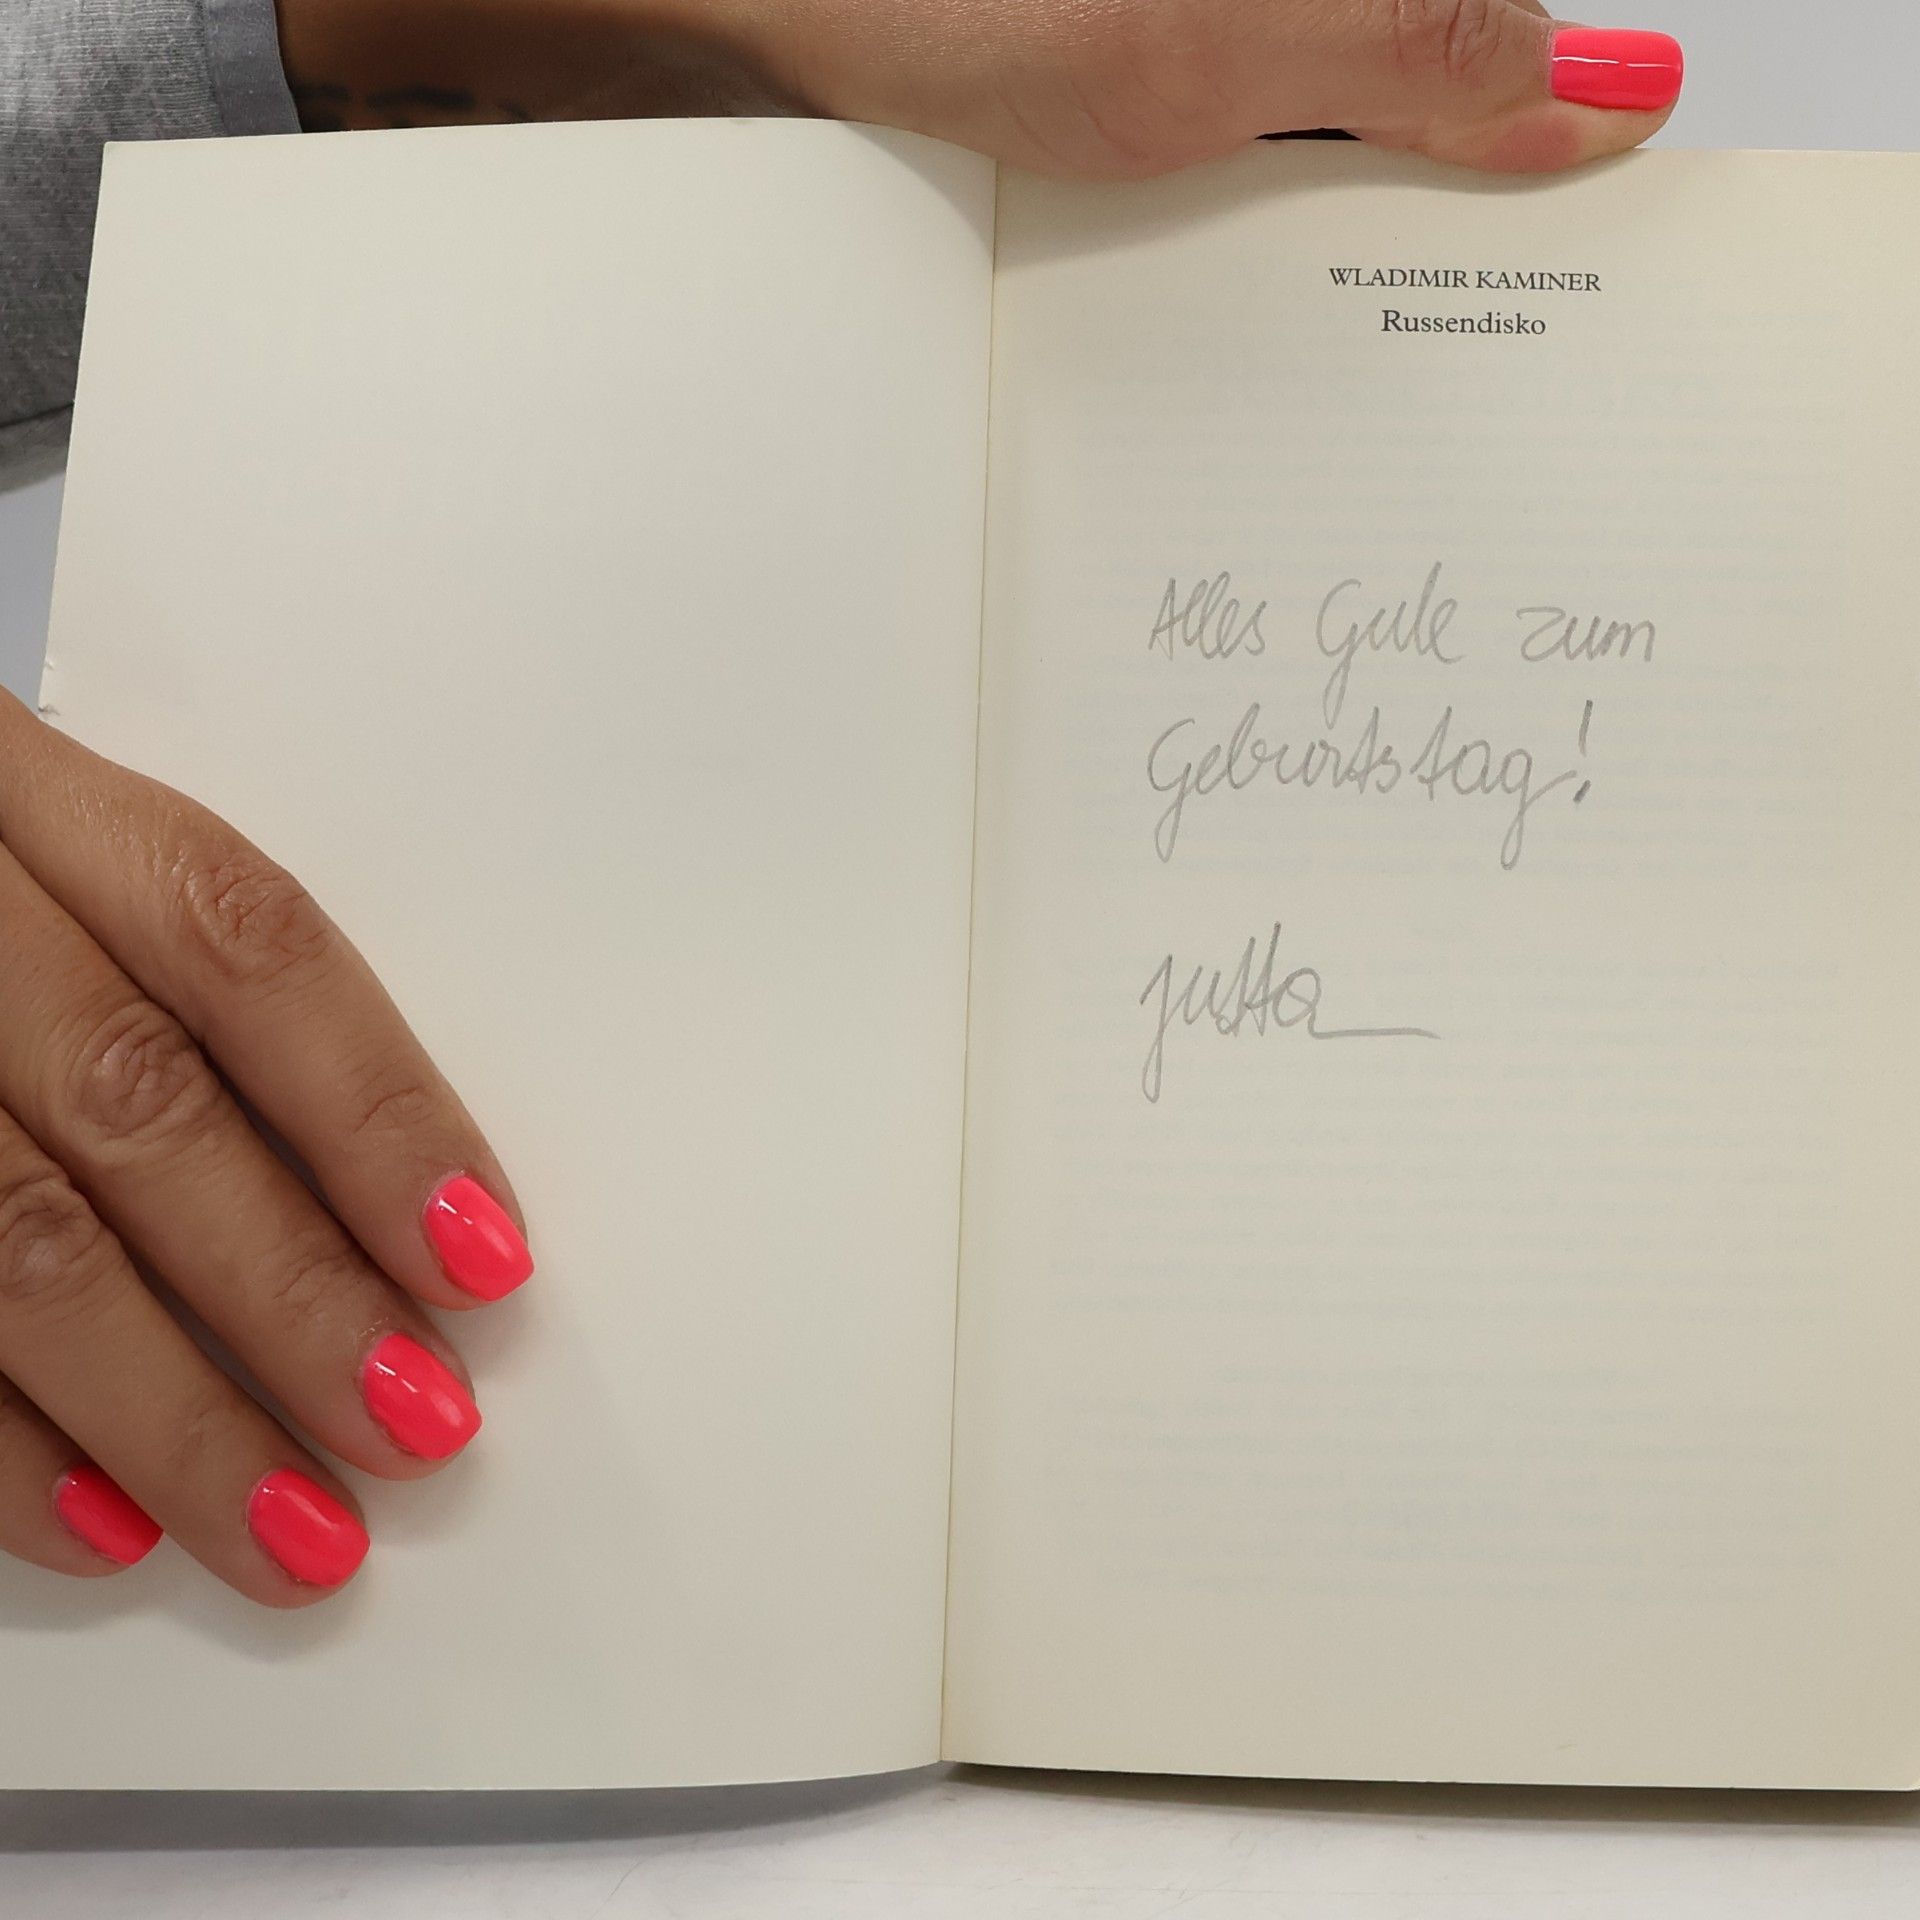 WLADIMIR KAMINER
Russendisko
Alles Gute zum
Geburtstag!
Jutta